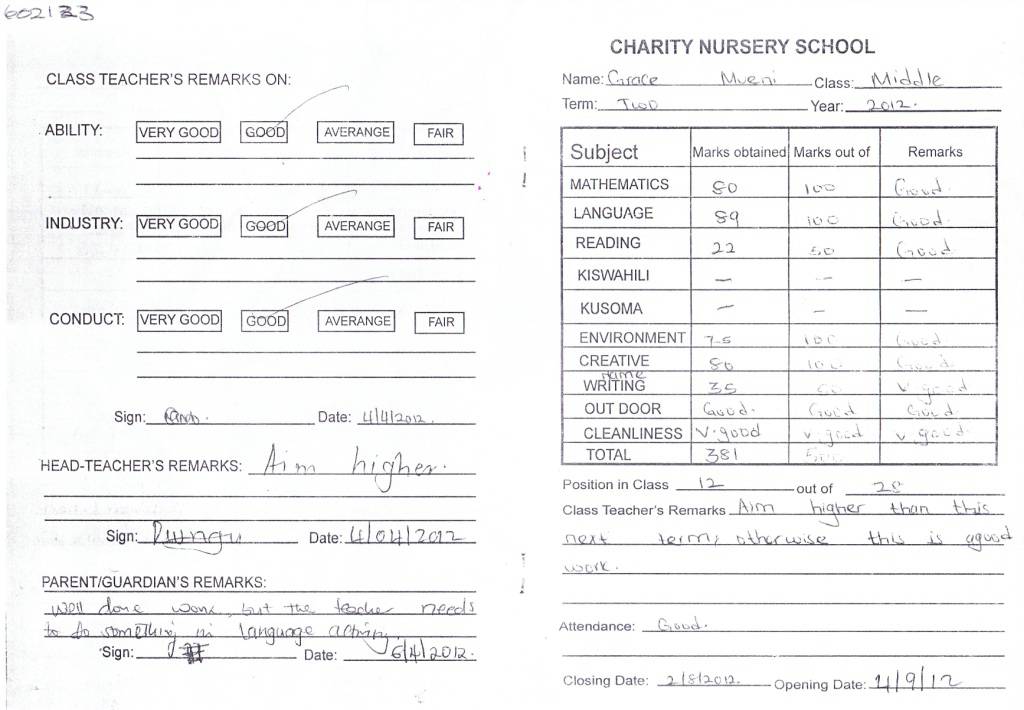 602133
CLASS TEACHER'S REMARKS ON:
ABILITY: VERY GOOD GOOD AVERANGE FAIR
INDUSTRY: VERY GOOD GOOD AVERANGE FAIR
CONDUCT: VERY GOOD GOOD AVERANGE FAIR
Sign: Date: 4/4/2012.
HEAD-TEACHER'S REMARKS: Aim higher.
Sign: Date: 4/04/2012
PARENT/GUARDIAN'S REMARKS:
well done work, but the teacher needs
to do something in language activity.
Sign: Date: 6/4/2012.
CHARITY NURSERY SCHOOL
Name: Grace Mueni Class: Middle
Term: Two Year: 2012.
Subject Marks obtained Marks out of Remarks
MATHEMATICS 80 100 Good.
LANGUAGE 89 100 Good.
READING 22 50 Good
KISWAHILI — — —
KUSOMA — — —
ENVIRONMENT 75 100 Good
CREATIVE 80 100 Good
name
WRITING 35 V. good
OUT DOOR Good. Good Good
CLEANLINESS V. good V. good V. good.
TOTAL 381 500
Position in Class 12 out of 28
Class Teacher's Remarks Aim higher than this
next term, otherwise this is agood
work.
Attendance: Good.
Closing Date: 2/8/2012. Opening Date: 4/9/12